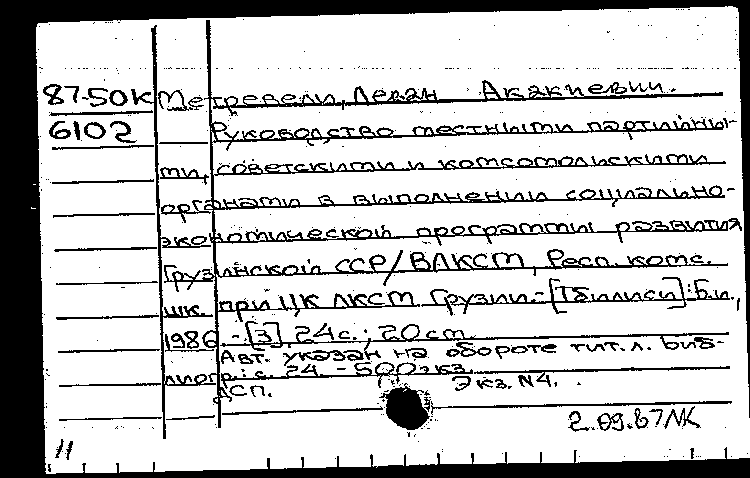 87-50К Метревели, Леван Акакиевич.
6102 Руководство местными партийны-
ми, советскими и комсомольскими
органами в выполнении социально-
экономической программы развития
Грузинской ССР/ВЛКСМ, Респ. комс.
шк. при ЦК ЛКСМ Грузии.-[Тбилиси]:Б.и.,
1986.-[3], 24 с.; 20 см.
Авт. указан на обороте тит. л. Биб-
лиогр.: с. 24. - 500 экз.
ДСП. Экз. N4.
2.09.87 NК
11